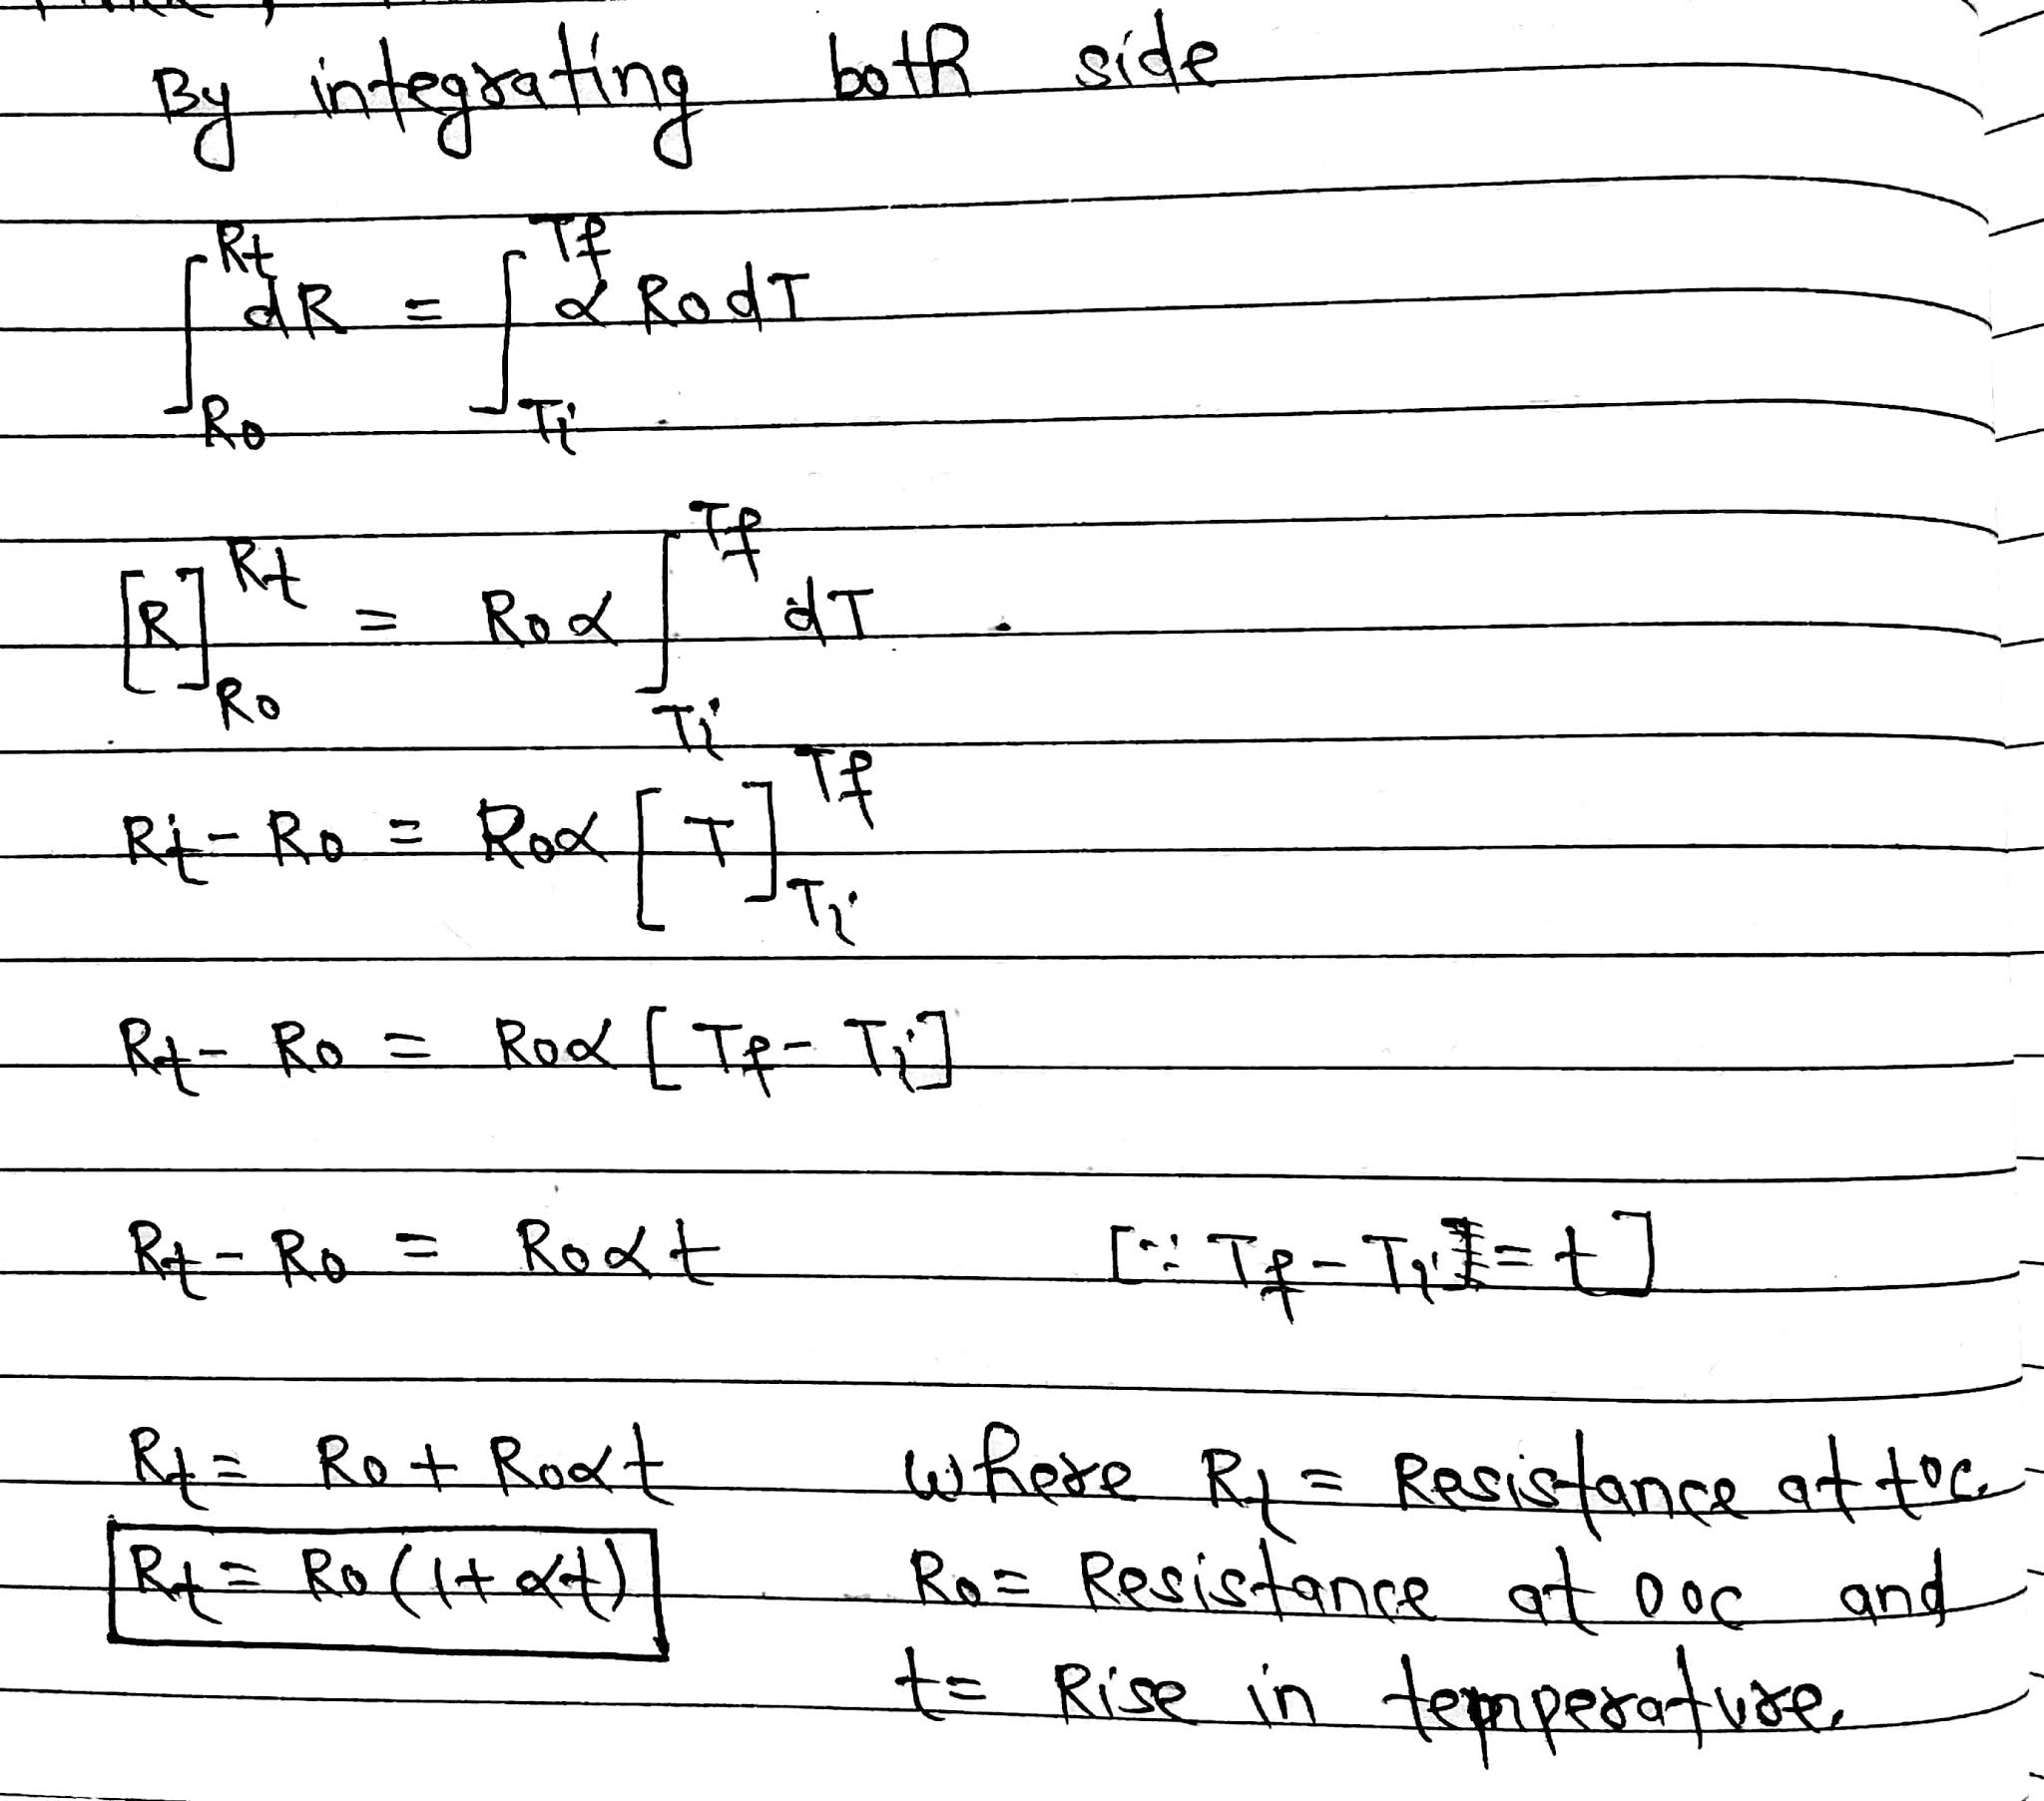 By integrating both side
∫_{R0}^{Rt} dR = ∫_{Ti}^{Tf} α R0 dT
[R]_{R0}^{Rt} = R0 α ∫_{Ti}^{Tf} dT
Rt - R0 = R0α [T]_{Ti}^{Tf}
Rt - R0 = R0α [Tf - Ti]
Rt - R0 = R0αt [∵ Tf - Ti = t]
Rt = R0 + R0αt where Rt = Resistance at t°C
Rt = R0 (1 + αt) R0 = Resistance at 0°C and
t = Rise in temperature.